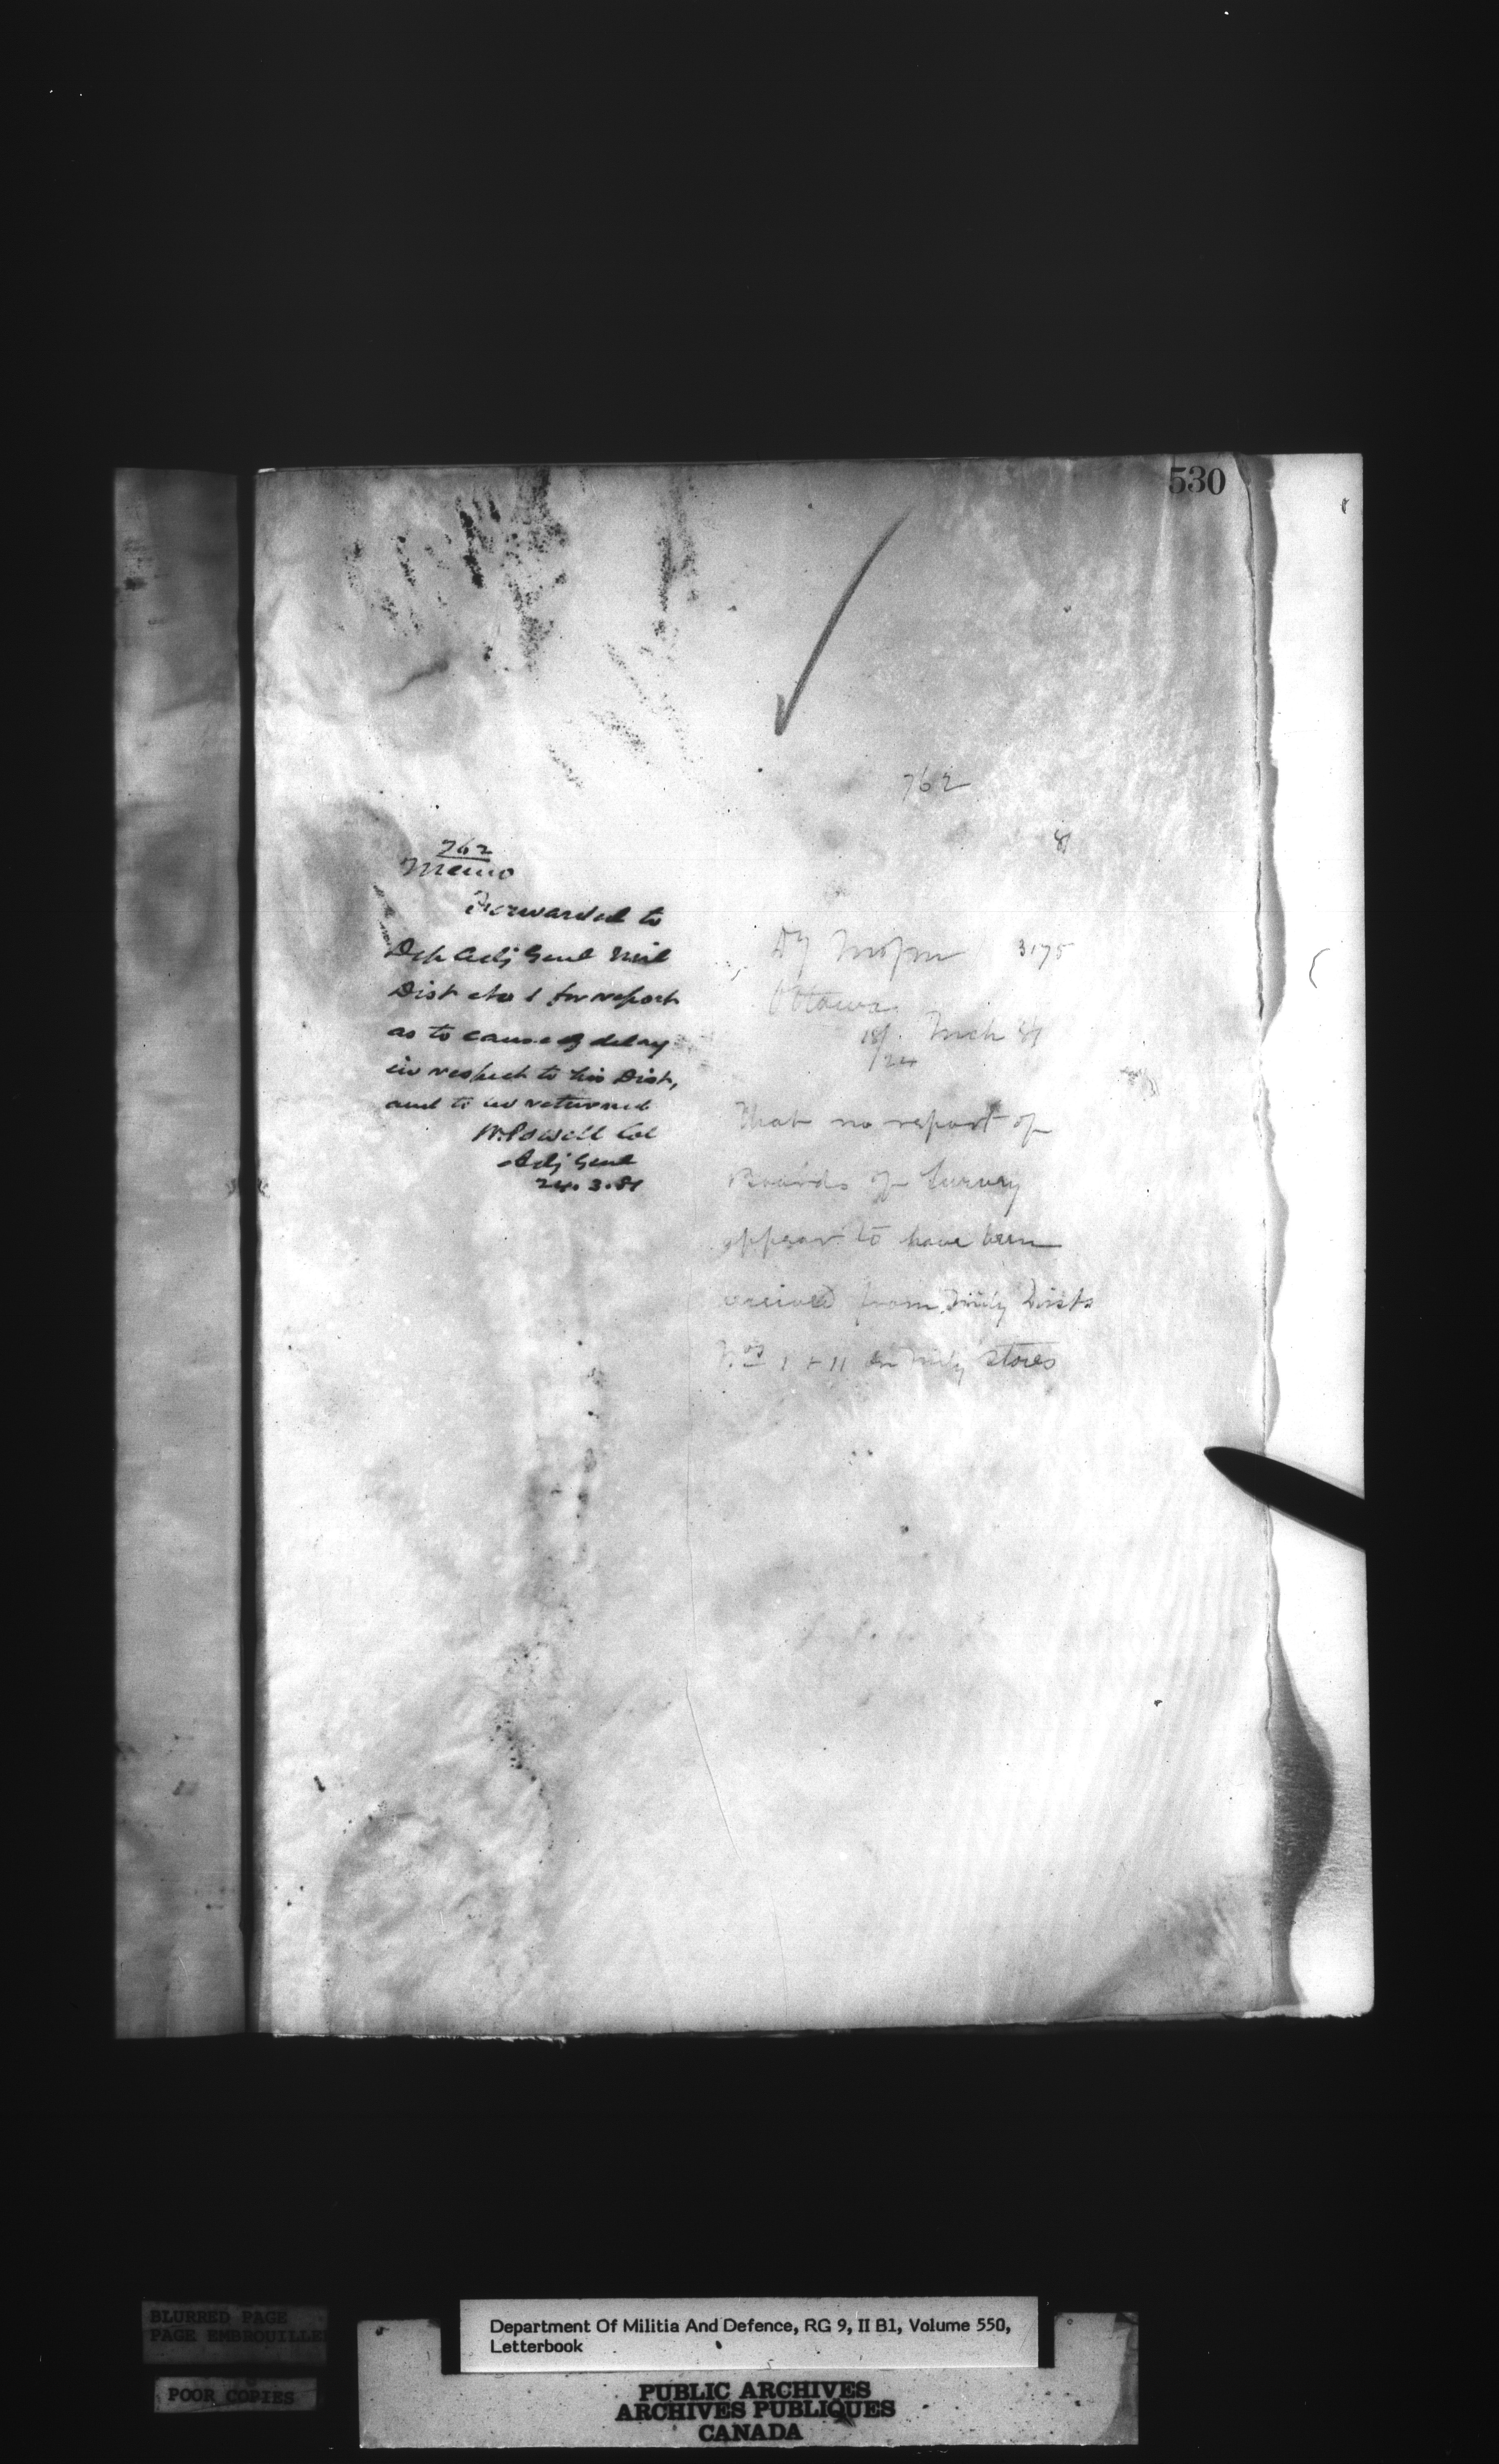 530
762
81
762
Memo
Forwarded to
Dep Adj Genl Mil
Dist No 1 for report
as to cause of delay
in respect to his Dist,
and to be returned
W. Powell Col
Adj Genl
24.3.81
Dy 3175
Ottawa
18/24 Mch 81
That no report of
Boards of Survey
appear to have been
received from Mily Dists
Nos 1 & 11 on Mily Stores
BLURRED PAGE
PAGE EMBROUILLE
POOR COPIES
Department Of Militia And Defence, RG 9, II B1, Volume 550,
Letterbook
PUBLIC ARCHIVES
ARCHIVES PUBLIQUES
CANADA